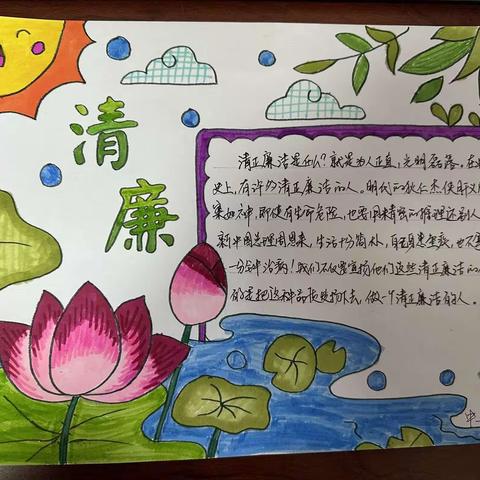 清廉
清正廉洁是什么？就是为人正直，光明磊落。在
史上，有许多清正廉洁的人。明代的狄仁杰使肝义
案如神，即使有生命危险，也要用精密的推理还别人
新中国总理周恩来，生活十分简朴，自己身患重疾，也不
一分钟治病！我们不仅要宣扬他们这些清正廉洁的
的走把这种品质发扬下去，做一个清正廉洁的人。